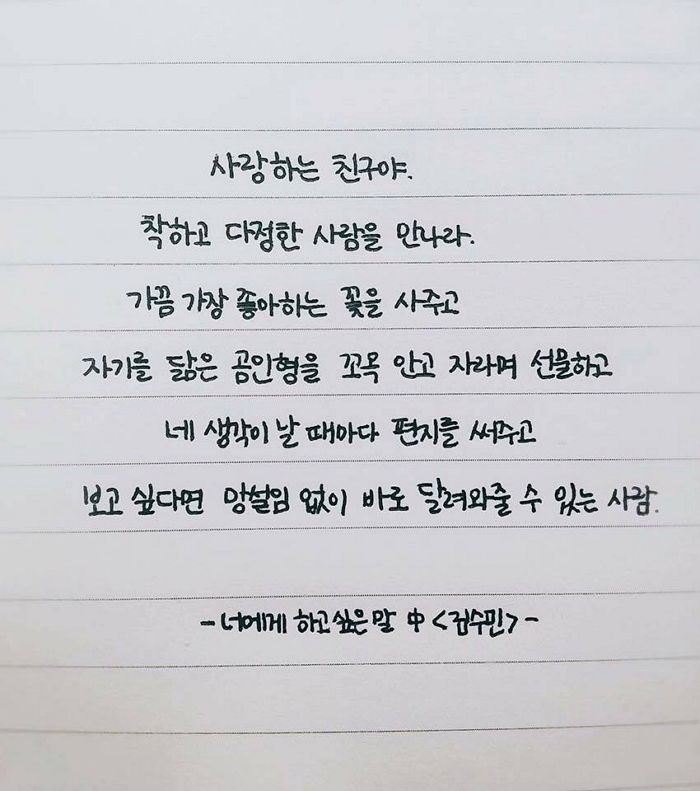 사랑하는 친구야.
착하고 다정한 사람을 만나라.
가끔 가장 좋아하는 꽃을 사주고
자기를 닮은 곰인형을 꼬옥 안고 자라며 선물하고
네 생각이 날 때마다 편지를 써주고
보고 싶다면 망설임 없이 바로 달려와줄 수 있는 사람.
- 너에게 하고싶은 말 中 <김수민> -